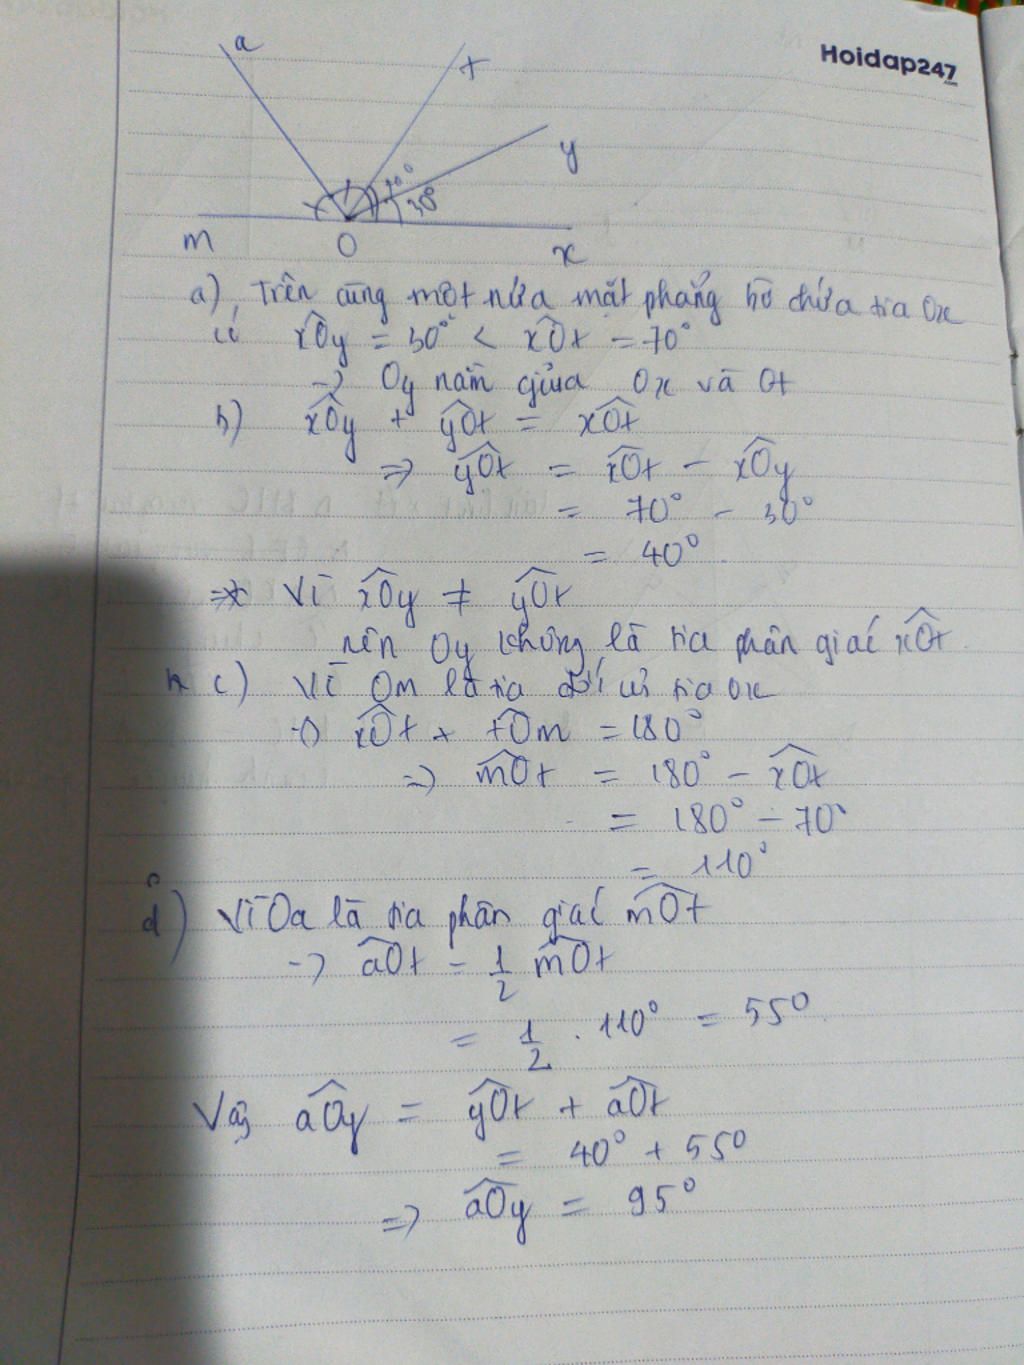 Hoidap247
.com
a
t
y
70°
30°
m
O
x
a) Trên cùng một nửa mặt phẳng bờ chứa tia Ox
có xÔy = 30° < xÔt = 70°
→ Oy nằm giữa Ox và Ot
b) xÔy + yÔt = xÔt
⇒ yÔt = xÔt - xÔy
= 70° - 30°
= 40°
⇒ Vì xÔy ≠ yÔt
nên Oy không là tia phân giác xÔt.
c) Vì Om là tia đối của tia Ox
→ xÔt + tÔm = 180°
⇒ mÔt = 180° - xÔt
= 180° - 70°
= 110°
d) Vì Oa là tia phân giác mÔt
→ aÔt = 1/2 mÔt
= 1/2 . 110° = 55°
Vậy aÔy = yÔt + aÔt
= 40° + 55°
⇒ aÔy = 95°